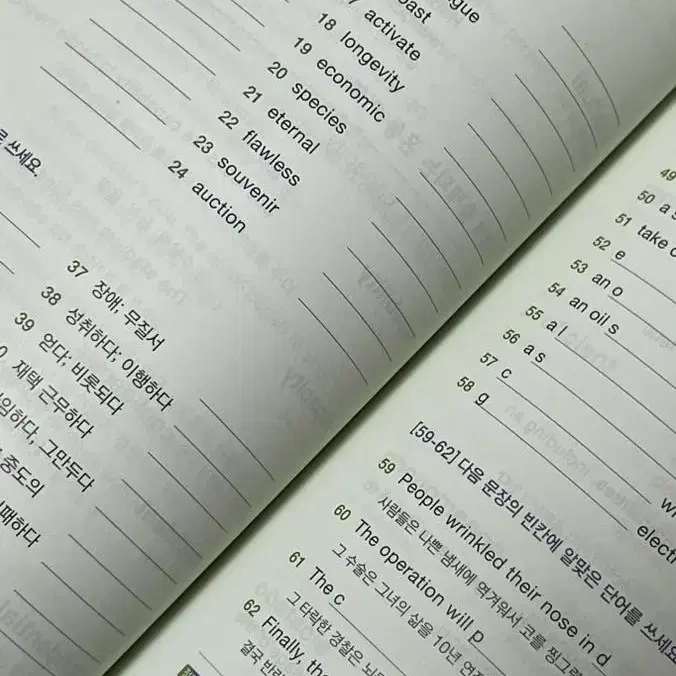 activate
18 longevity
19 economic
20 species
21 eternal
22 flawless
23 souvenir
24 auction
쓰세요.
37 장애; 무질서
38 성취하다; 이행하다
39 얻다; 비롯되다
재택 근무하다
그만두다
중도의
50 a s
51 take
52 e
53 an o
54 an oil s
55 a l
56 a s
57 c
58 g
electr
[59-62] 다음 문장의 빈칸에 알맞은 단어를 쓰세요
59 People wrinkled their nose in d
사람들은 나쁜 냄새에 역겨워서 코를 찡그
60 The operation will p
그 수술은 그녀의 삶을 10년 연
61 The c
그 타락한 경찰은 뇌
62 Finally, the
결국 반